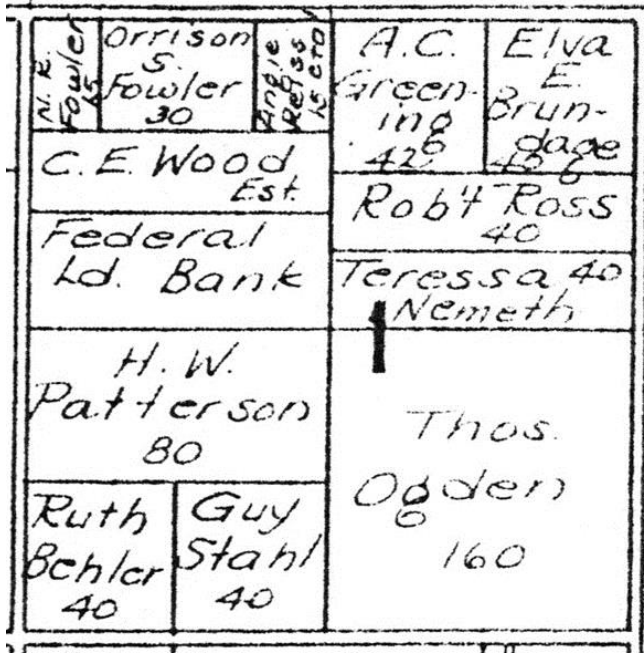 N. R.
Fowler
15
Orrison
S.
Fowler
30
Angie
15 etal
A.C.
Green-
ing
42
Elva
E.
Brun-
dage
C. E. Wood
Est.
Rob't Ross
40
Federal
Ld. Bank
Teressa 40
Nemeth
1
H. W.
Patterson
80
Thos.
Ogden
160
Ruth
Behler
40
Guy
Stahl
40